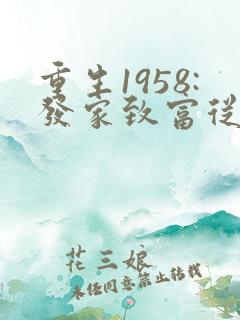 重生1958:
發家致富從
花三娘
未經同意禁止轉載